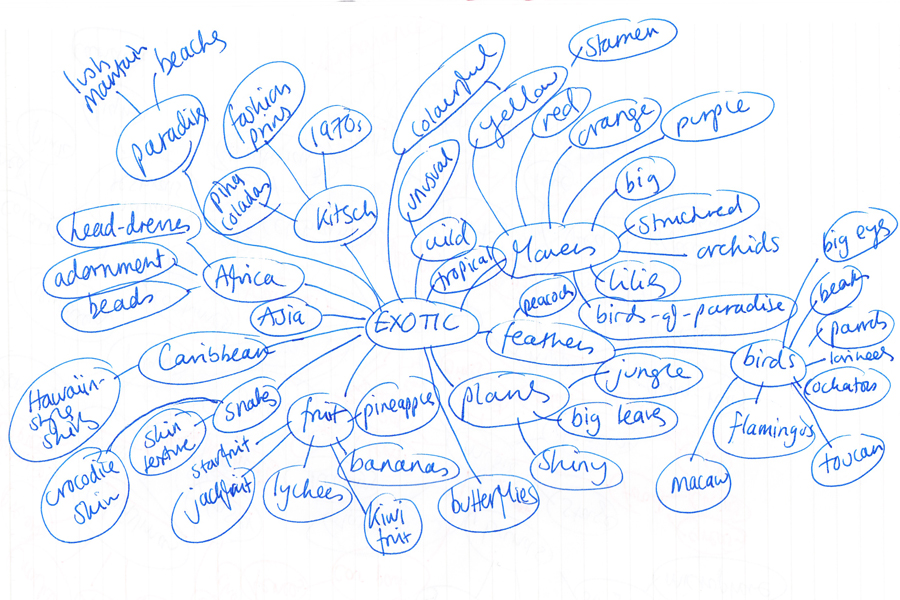 lush
mantain
beaches
paradise
fashion
prins
1970s
piña
coladas
Kitsch
colourful
unusual
wild
tropical
stamen
yellow
red
orange
purple
big
structured
orchids
lilies
birds-of-paradise
flowers
head-dresses
adornment
beads
Africa
Asia
Caribbean
Hawaiin-
style
shirts
EXOTIC
peacock
feathers
birds
big eyes
beaks
parrots
lorikeets
cockatoos
toucan
flamingos
macaw
snakes
skin
texture
crocodile
skin
fruit
pineapples
bananas
kiwi
fruit
lychees
starfruit
jackfruit
butterflies
plants
jungle
big leaves
shiny